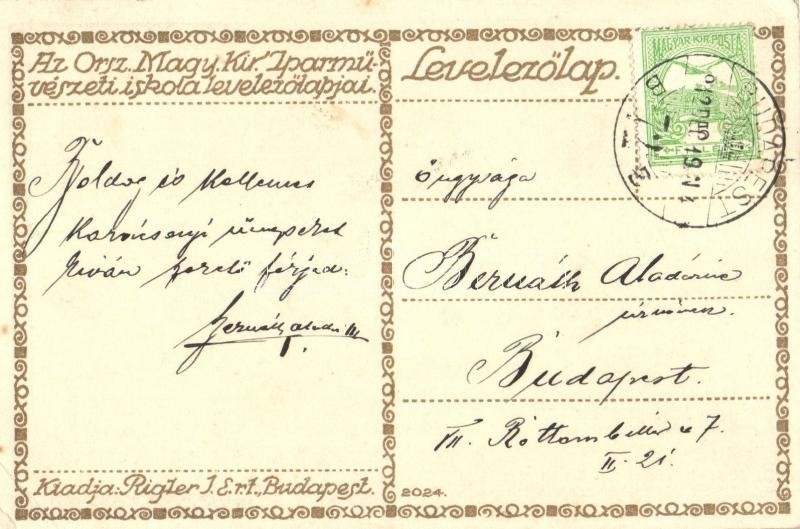 Az Orsz. Magy. Kir. Iparmű-
vészeti iskola levelezőlapjai.
Levelezőlap.
MAGYAR KIR. POSTA
BUDAPEST
Boldog és Kellemes
Karácsonyi ünnepeket
Kíván szerető férjed:
Bernáth Aladár
Őnagysága
Bernáth Aladárné
úrnőnek
Budapest.
VII. Rottenbiller u 7.
II. 21.
Kiadja: Rigler J. E. r.t., Budapest.
2024.